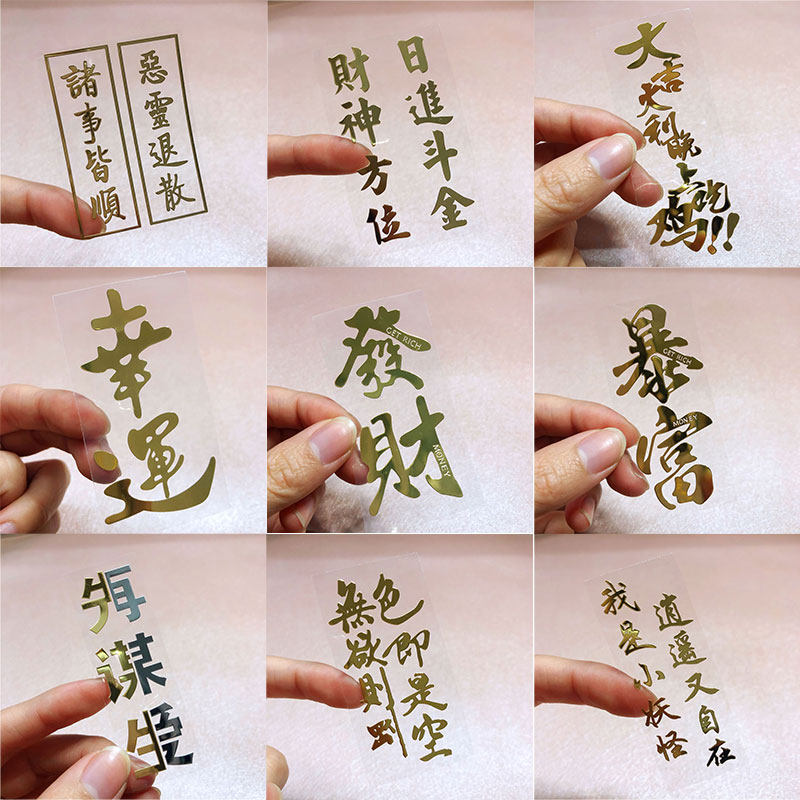 惡靈退散
諸事皆順
日進斗金
財神方位
大吉大利晚上吃鸡!!
幸運
發財
GET RICH
MONEY
暴富
GET RICH
MONEY
先再
謀
生愛
色即是空
無欲則剛
我是小妖怪
逍遥又自在